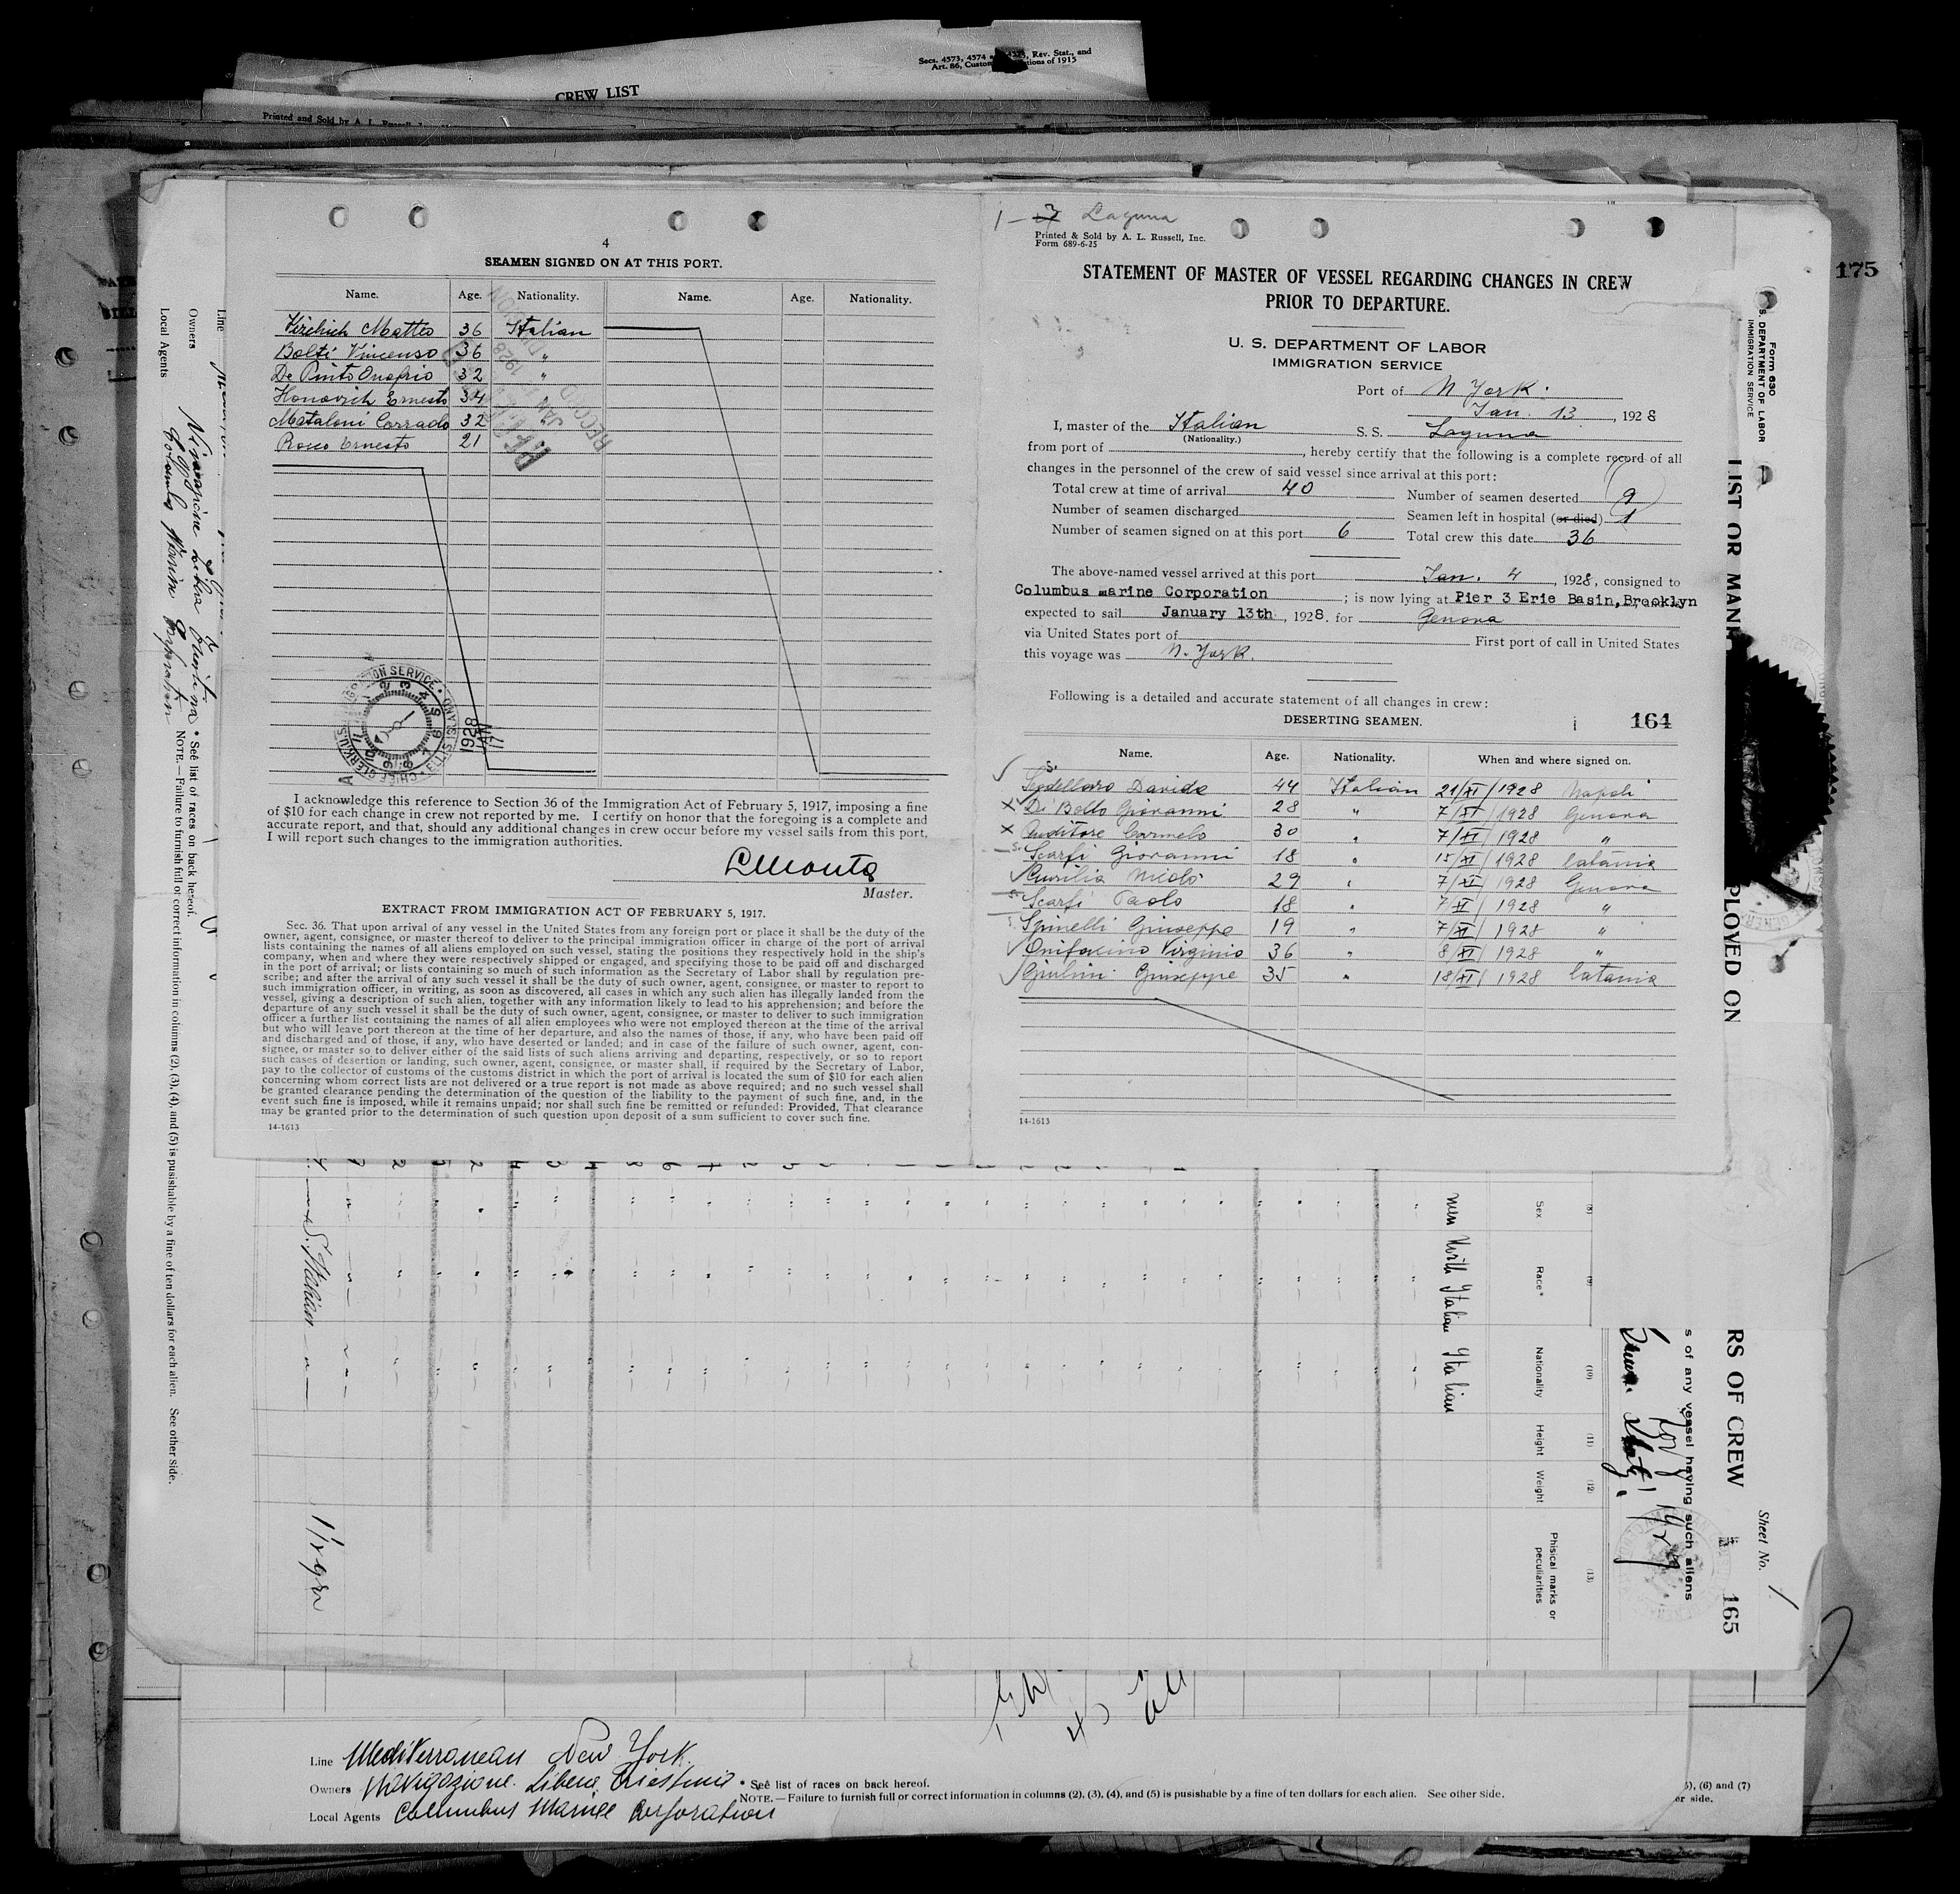 Sects. 4573, 4574 Rev. Stat., and
Art. 86, Custom tions of 1915
CREW LIST
Printed and Sold by A. L. Russell
175
4
SEAMEN SIGNED ON AT THIS PORT.
Name. Age. Nationality. Name. Age. Nationality.
Matteo 36 Italian
Bolti Vincenso 36 "
De Pinto Onofrio 32 "
Honovich Ernesto 34
Mataloni Corrado 32
Rocco Ernesto 21
1928
JAN
17
I acknowledge this reference to Section 36 of the Immigration Act of February 5, 1917, imposing a fine
of $10 for each change in crew not reported by me. I certify on honor that the foregoing is a complete and
accurate report, and that, should any additional changes in crew occur before my vessel sails from this port,
I will report such changes to the immigration authorities.
Master.
EXTRACT FROM IMMIGRATION ACT OF FEBRUARY 5, 1917.
Sec. 36. That upon arrival of any vessel in the United States from any foreign port or place it shall be the duty of the
owner, agent, consignee, or master thereof to deliver to the principal immigration officer in charge of the port of arrival
lists containing the names of all aliens employed on such vessel, stating the positions they respectively hold in the ship's
company, when and where they were respectively shipped or engaged, and specifying those to be paid off and discharged
in the port of arrival; or lists containing so much of such information as the Secretary of Labor shall by regulation pre-
scribe; and after the arrival of any such vessel it shall be the duty of such owner, agent, consignee, or master to report to
such immigration officer, in writing, as soon as discovered, all cases in which any such alien has illegally landed from the
vessel, giving a description of such alien, together with any information likely to lead to his apprehension; and before the
departure of any such vessel it shall be the duty of such owner, agent, consignee, or master to deliver to such immigration
officer a further list containing the names of all alien employees who were not employed thereon at the time of the arrival
but who will leave port thereon at the time of her departure, and also the names of those, if any, who have been paid off
and discharged and of those, if any, who have deserted or landed; and in case of the failure of such owner, agent, con-
signee, or master so to deliver either of the said lists of such aliens arriving and departing, respectively, or so to report
such cases of desertion or landing, such owner, agent, consignee, or master shall, if required by the Secretary of Labor,
pay to the collector of customs of the customs district in which the port of arrival is located the sum of $10 for each alien
concerning whom correct lists are not delivered or a true report is not made as above required; and no such vessel shall
be granted clearance pending the determination of the question of the liability to the payment of such fine, and, in the
event such fine is imposed, while it remains unpaid; nor shall such fine be remitted or refunded: Provided, That clearance
may be granted prior to the determination of such question upon deposit of a sum sufficient to cover such fine.
14-1613
Laguna
Printed & Sold by A. L. Russell, Inc.
Form 689-6-25
STATEMENT OF MASTER OF VESSEL REGARDING CHANGES IN CREW
PRIOR TO DEPARTURE.
U. S. DEPARTMENT OF LABOR
IMMIGRATION SERVICE
Port of N York.
Jan. 13, 1928
I, master of the Italian S. S. Laguna
(Nationality.)
from port of , hereby certify that the following is a complete record of all
changes in the personnel of the crew of said vessel since arrival at this port:
Total crew at time of arrival 40 Number of seamen deserted 9
Number of seamen discharged Seamen left in hospital (or died) 1
Number of seamen signed on at this port 6 Total crew this date 36
The above-named vessel arrived at this port Jan. 4, 1928, consigned to
Columbus marine Corporation ; is now lying at Pier 3 Erie Basin, Brooklyn
expected to sail January 13th, 1928. for Genova
via United States port of First port of call in United States
this voyage was N. York.
Following is a detailed and accurate statement of all changes in crew:
DESERTING SEAMEN. 164
Name. Age. Nationality. When and where signed on.
Davide 44 Italian 21/XI/1928 Napoli
Di Bello Giovanni 28 " 7/XI/1928 Genova
Auditore Carmelo 30 " 7/XI/1928 "
Scarfi Giovanni 18 " 15/XI/1928 Catania
Nicolò 29 " 7/XI/1928 Genova
Scarfi Paolo 18 " 7/XI/1928 "
Spinelli Giuseppe 19 " 7/XI/1928 "
Onifacino Virginio 36 " 8/XI/1928 "
Giulini Giuseppe 35 " 18/XI/1928 Catania
14-1613
Form 630
S. DEPARTMENT OF LABOR
IMMIGRATION SERVICE
LIST OR MANI
PLOYED ON
RS OF CREW
Sheet No. 1
165
s of any vessel having such aliens
(8) (9) (10) (11) (12) (13)
Sex Race* Nationality Height Weight Phisical marks or peculiarities
men North Italian Italian
S. Italian
Line
Owners
Local Agents Columbus Marine Corporation
* See list of races on back hereof.
NOTE.—Failure to furnish full or correct information in columns (2), (3), (4), and (5) is pusishable by a fine of ten dollars for each alien. See other side.
Line Mediterranean New York.
Owners Navigazione Libera Triestina
Local Agents Columbus Marine Corporation
* See list of races on back hereof.
NOTE.—Failure to furnish full or correct information in columns (2), (3), (4), and (5) is pusishable by a fine of ten dollars for each alien. See other side.
5), (6) and (7)
er side.